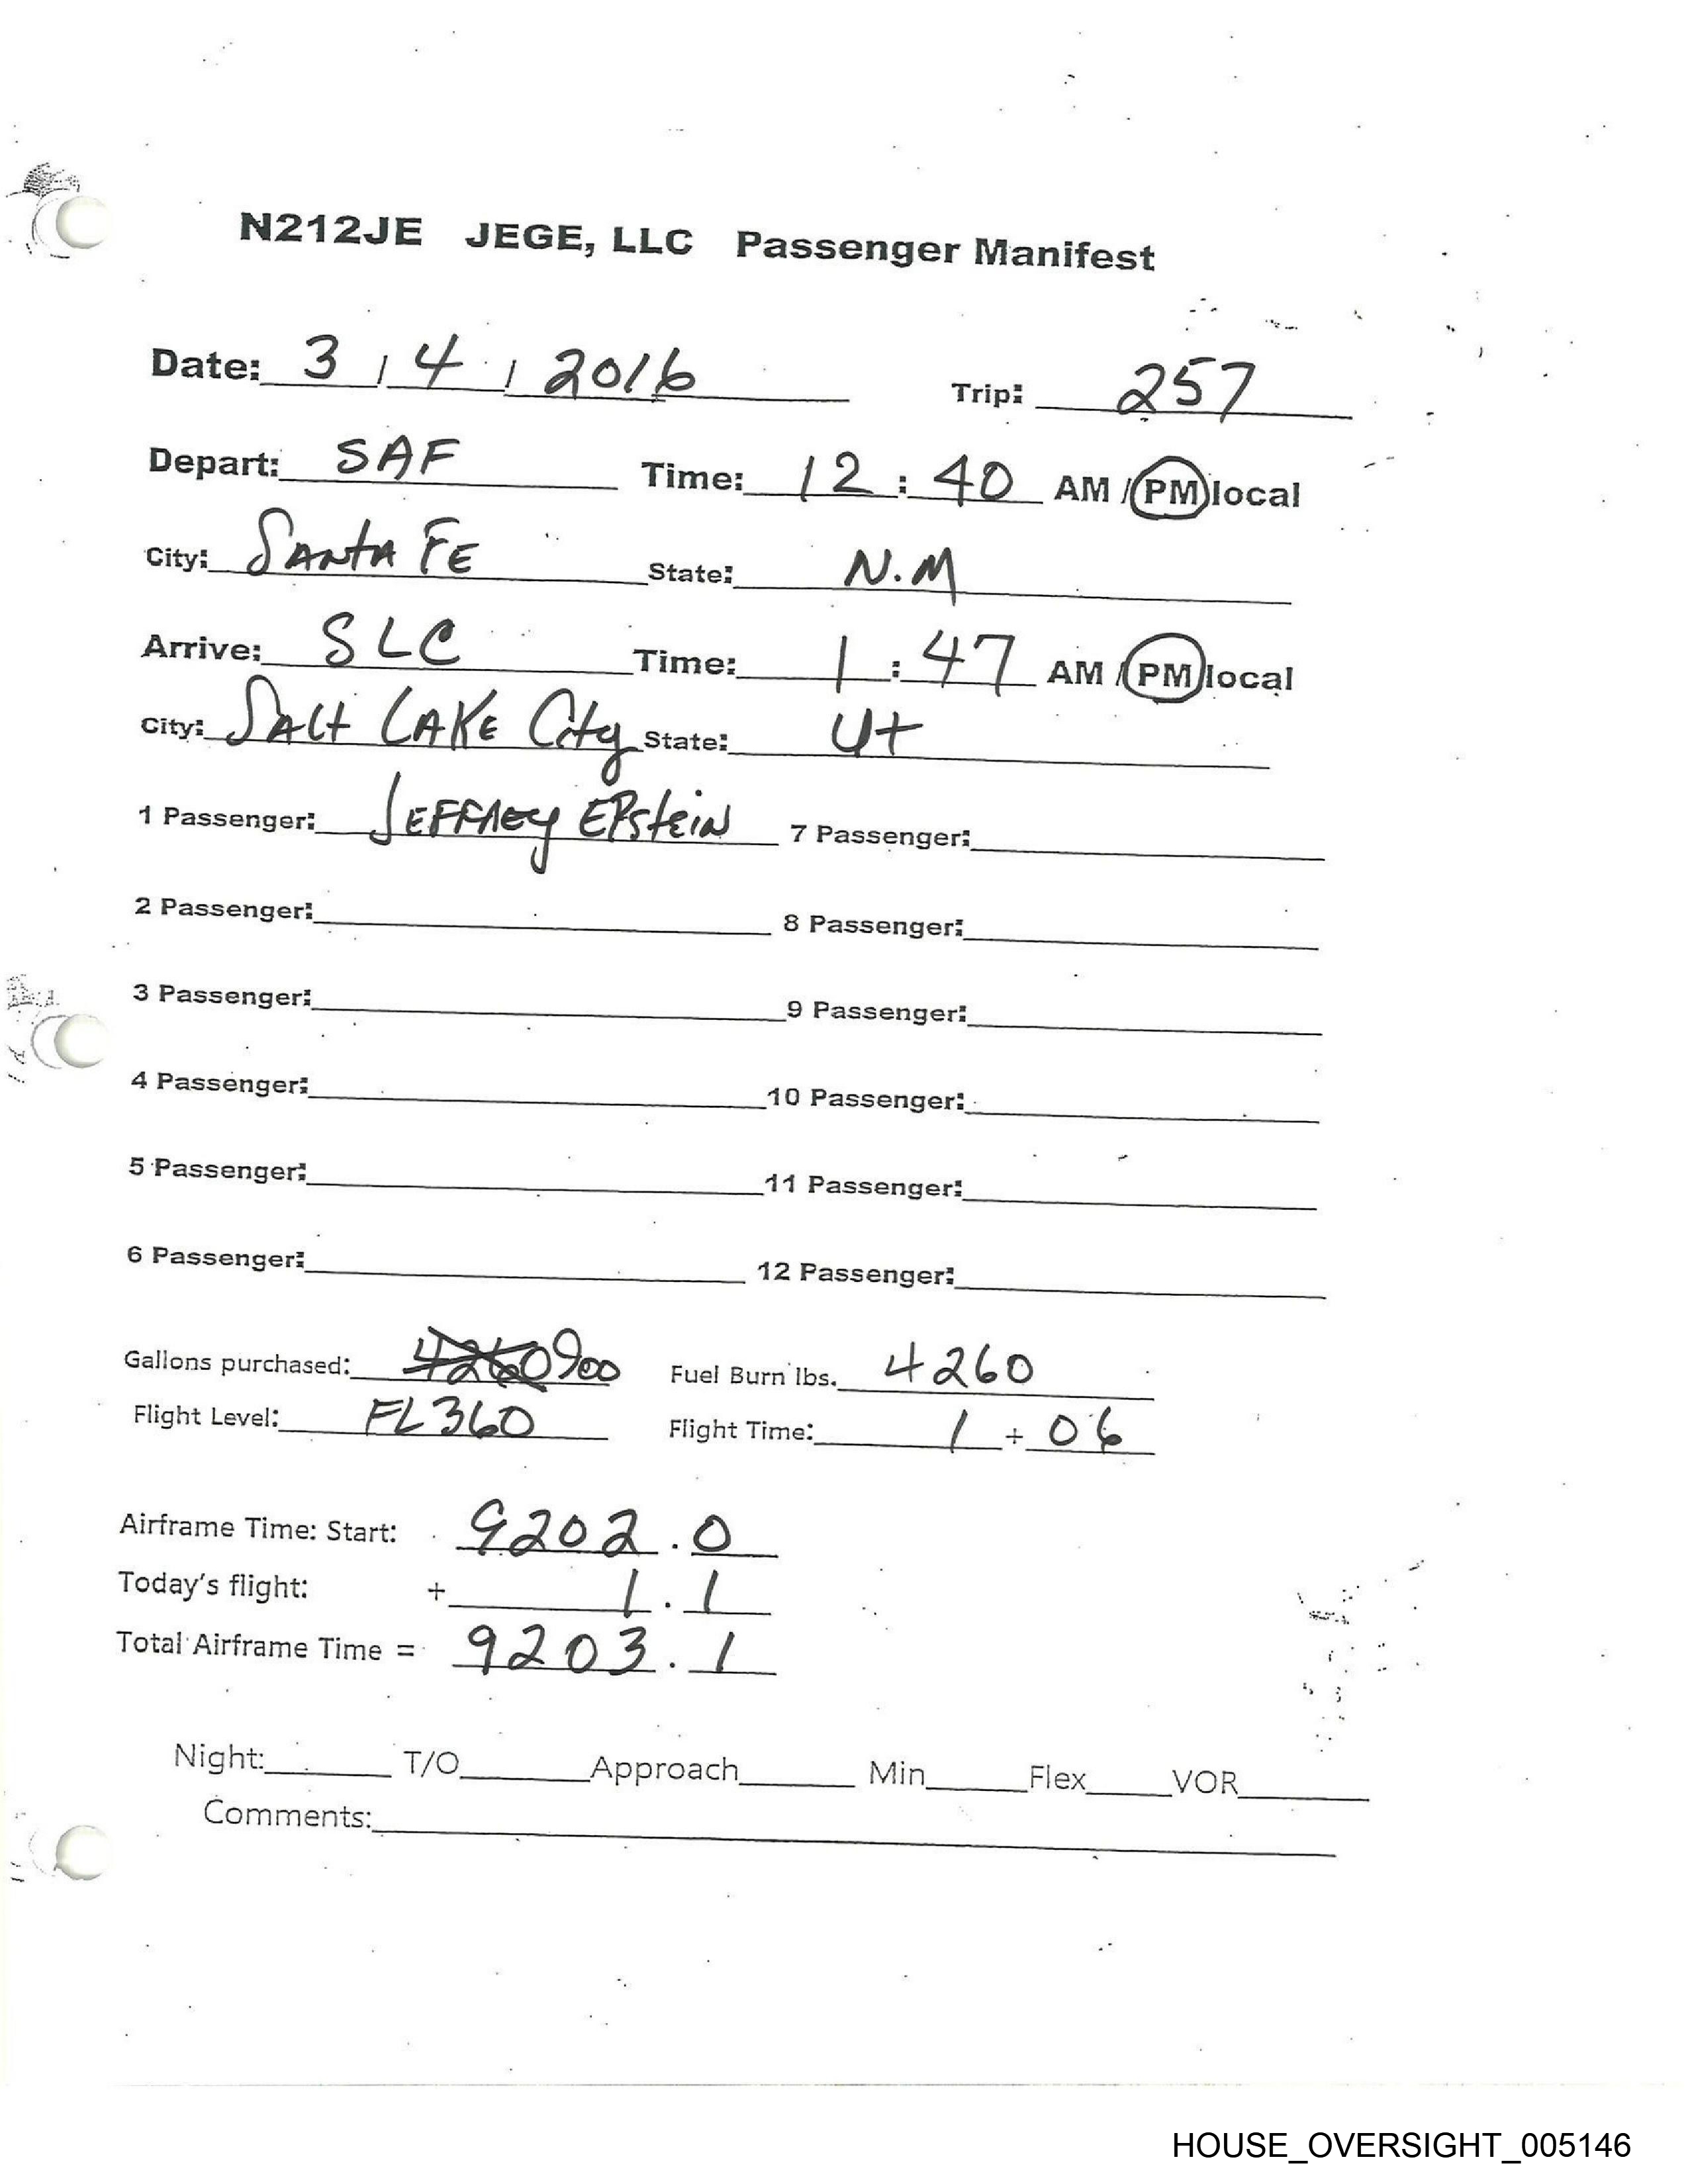 N212JE JEGE, LLC Passenger Manifest
Date: 3 / 4 / 2016 Trip: 257
Depart: SAF Time: 12 : 40 AM / PM local
City: SANTA FE State: N.M
Arrive: SLC Time: 1 : 47 AM / PM local
City: SALT LAKE City State: Ut
1 Passenger: JEFFREY EPstEIN 7 Passenger:
2 Passenger: 8 Passenger:
3 Passenger: 9 Passenger:
4 Passenger: 10 Passenger:
5 Passenger: 11 Passenger:
6 Passenger: 12 Passenger:
Gallons purchased: 4260 900 Fuel Burn lbs. 4260
Flight Level: FL360 Flight Time: 1 + 06
Airframe Time: Start: 9202.0
Today's flight: + 1.1
Total Airframe Time = 9203.1
Night: T/O Approach Min Flex VOR
Comments:
HOUSE_OVERSIGHT_005146